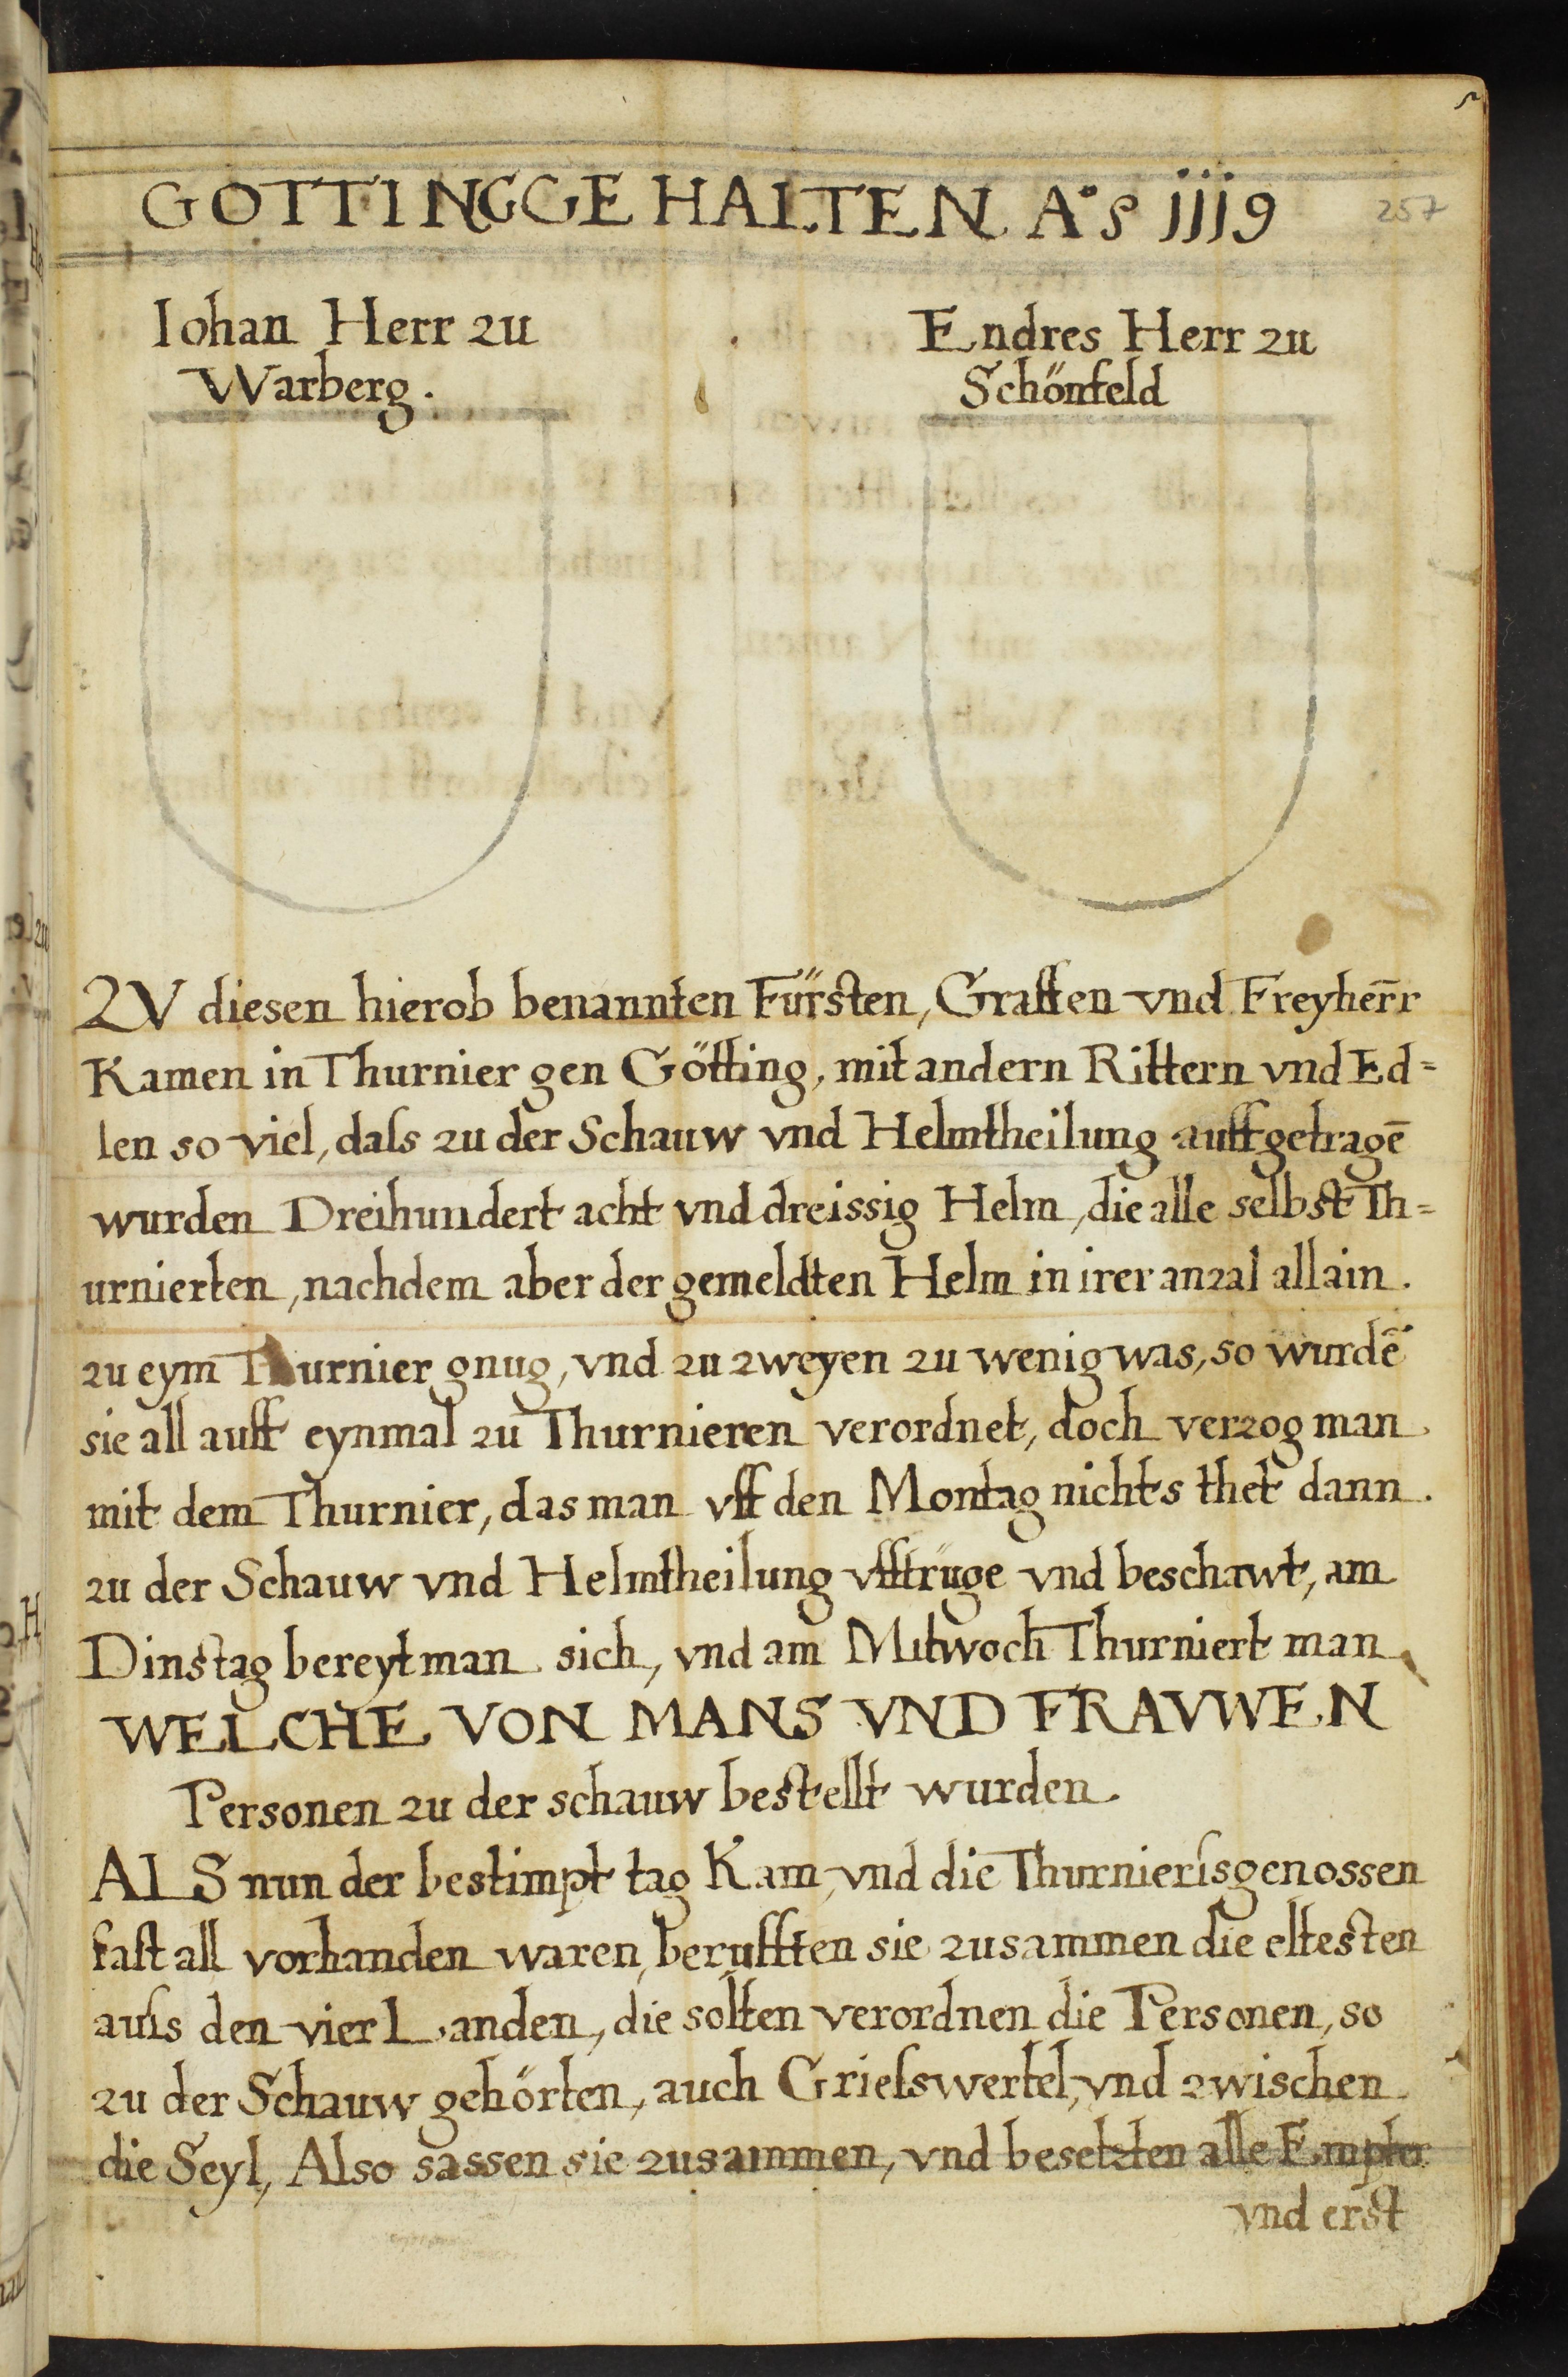 GOTTINGGEHALTEN A°s jjj9
257
Iohan Herr zu
Warberg.
Endres Herr zu
Schönfeld
ZV diesen hierob benannten Fürsten, Graffen vnd Freyher̄r
Kamen in Thurnier gen Götting, mit andern Rittern vnd Ed=
len so viel, daſs zu der Schauw vnd Helmtheilung auffgetragē
wurden Dreihundert acht vnd dreissig Helm, die alle selbst Th=
urnierten, nachdem aber der gemeldten Helm in irer anzal allain.
zu eym Thurnier gnug, vnd zu zweyen zu wenig was, so wurdē
sie all auff eynmal zu Thurnieren verordnet, doch verzog man
mit dem Thurnier, das man vff den Montag nichts thet dann.
zu der Schauw vnd Helmtheilung vfftrüge vnd beschawt, am
Dinstag bereyt man sich, vnd am Mitwoch Thurniert man
WELCHE VON MANS VND FRAVWEN
Personen zu der schauw bestellt wurden.
ALS nun der bestimpt tag Kam, vnd die Thurnierſsgenossen
fast all vorhanden waren, berufften sie zusammen die eltesten
auſs den vier Landen, die solten verordnen die Personen, so
zu der Schauw gehörten, auch Grieſswertel, vnd zwischen
die Seyl, Also sassen sie zusammen, vnd besetzten alle Empter
vnd erst